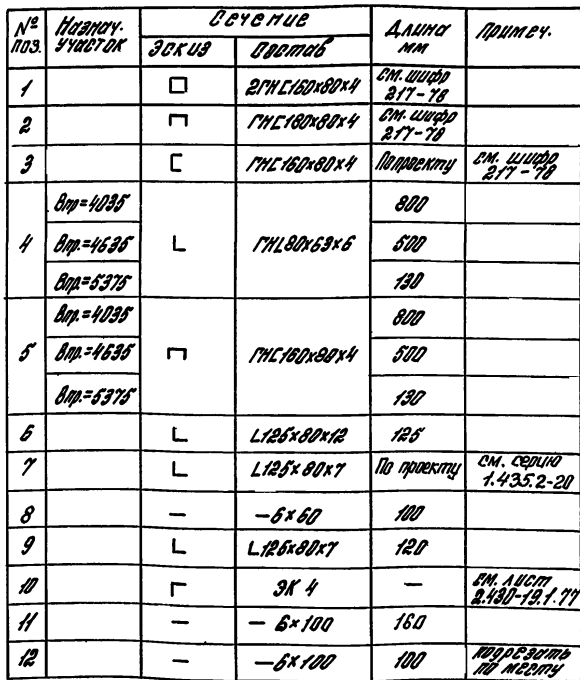 № поз. Назнач. участок Сечение Длина мм Примеч.
Эскиз Состав
1 2ГНС160х80х4 см. шифр 217-78
2 ГНС160х80х4 см. шифр 217-78
3 ГНС160х80х4 По проекту см. шифр 217-78
4 Впр=4035 ГНL80х63х6 800
Впр.=4635 500
Впр=5375 130
5 Впр.=4035 ГНС160х80х4 800
Впр.=4635 500
Впр.=5375 130
6 L125х80х12 125
7 L125х80х7 По проекту см. серию 1.435.2-20
8 – -6×60 100
9 L125х80х7 120
10 ЭК 4 — см. лист 2.430-19.1.77
11 – -6×100 160
12 – -6×100 100 подрезать по месту